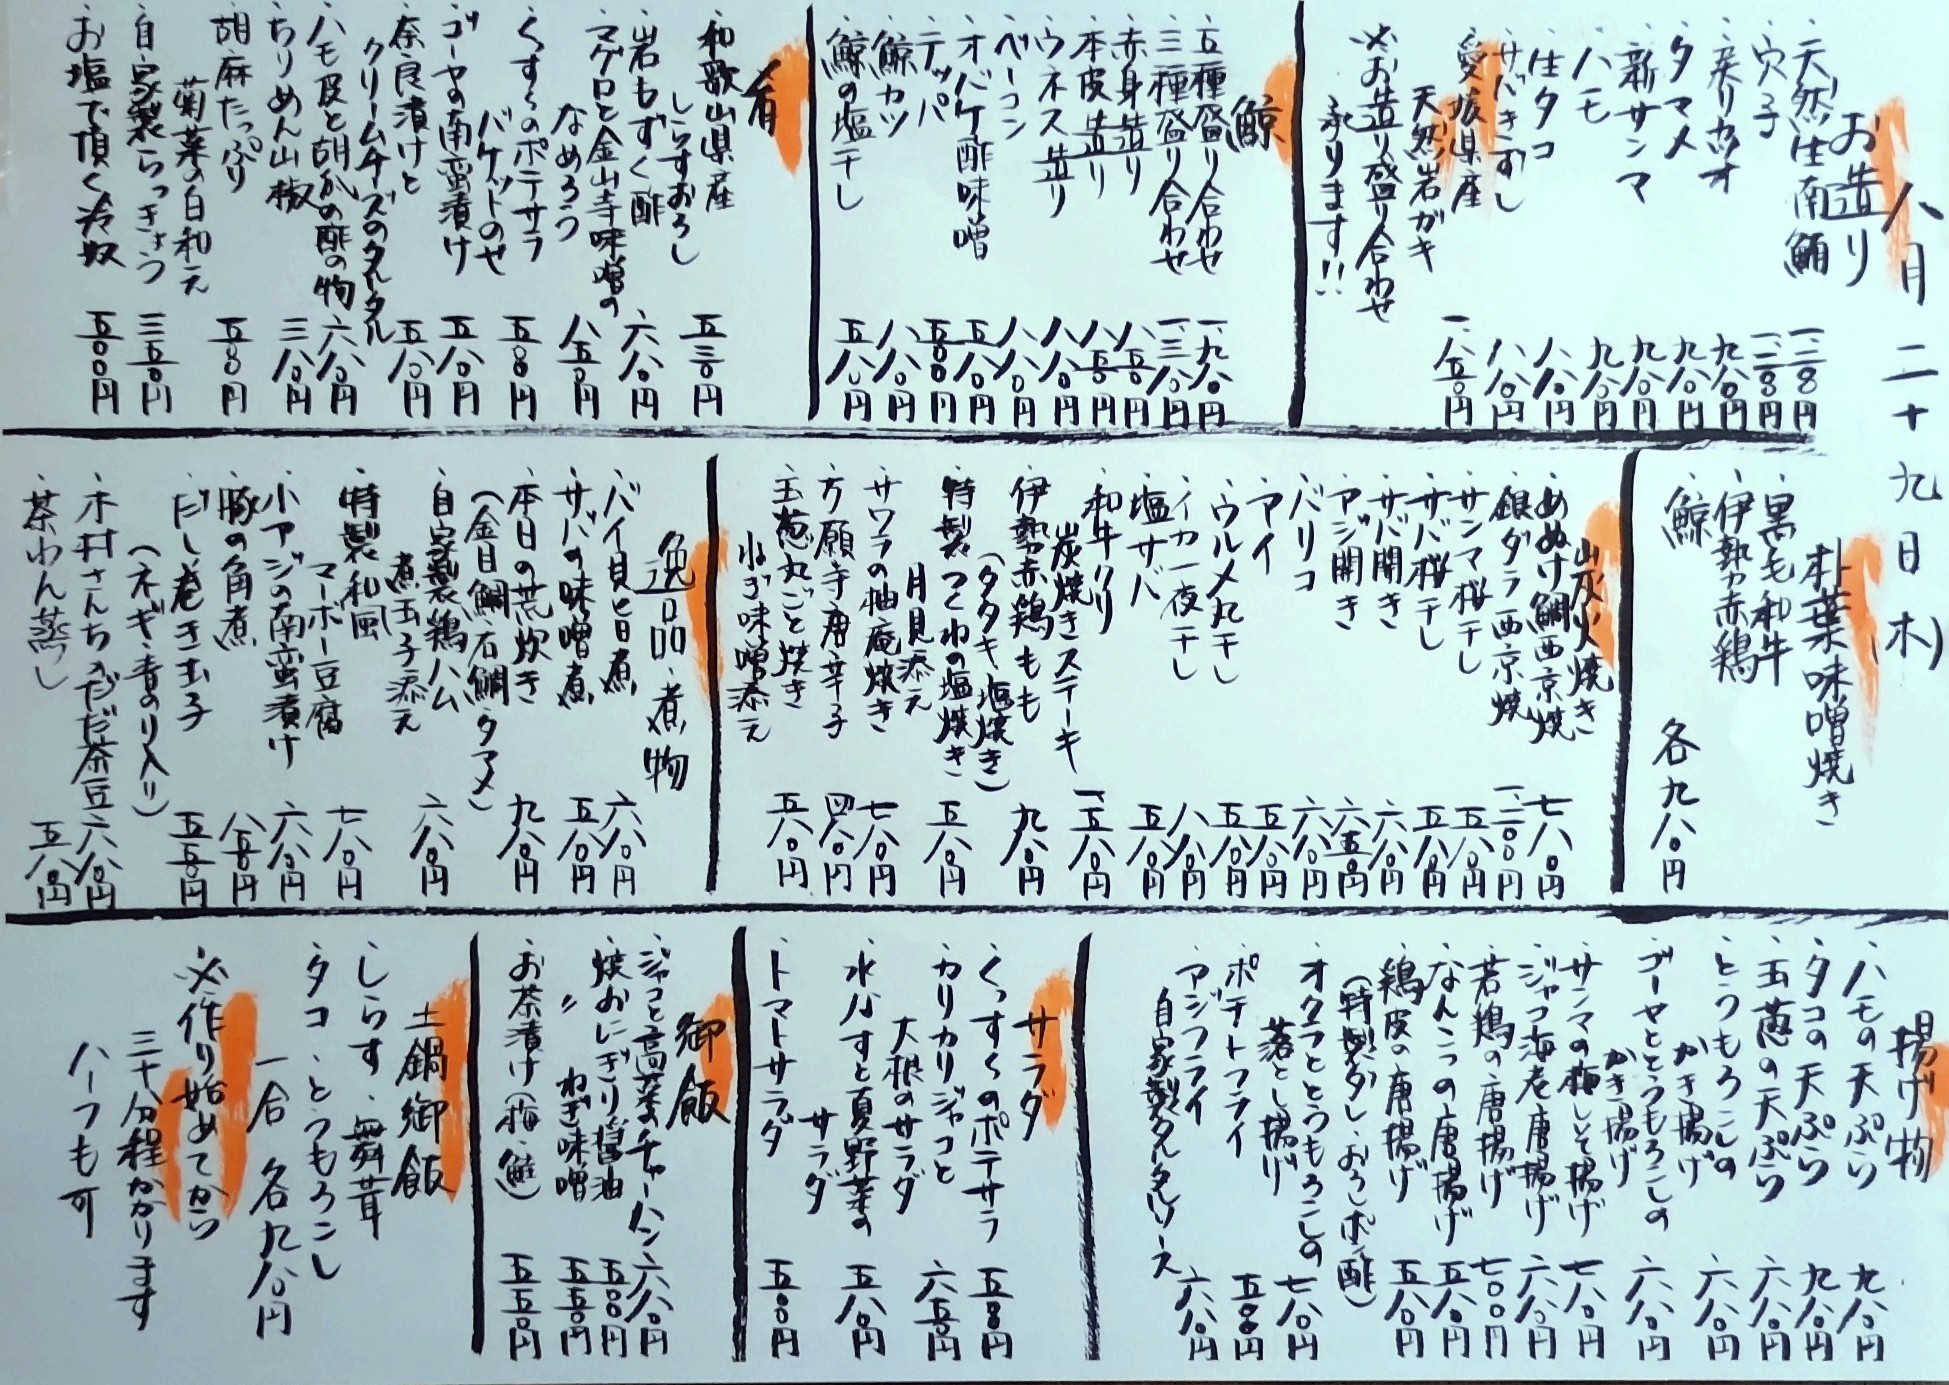 八月二十九日(木)
お造り
・天然生南鮪 一、二八〇円
・穴子 一、二八〇円
・炙りカツオ 九八〇円
・タマメ 九八〇円
・新サンマ 九八〇円
・ハモ 九八〇円
・生タコ 八八〇円
・サバきずし 八八〇円
・愛媛県産
天然岩ガキ 一、八五〇円
※お造り盛り合わせ
承ります!!
鯨
・五種盛り合わせ 一、九八〇円
・三種盛り合わせ 一、三八〇円
・赤身造り 八五〇円
・本皮造り 八五〇円
・ウネス造り 八八〇円
・ベーコン 八八〇円
・オバケ酢味噌 五八〇円
・テッパ 五八〇円
・鯨カツ 八八〇円
・鯨の塩干し 五八〇円
肴
・和歌山県産
しらすおろし 五三〇円
・岩もずく酢 六八〇円
・マグロと金山寺味噌の
なめろう 八五〇円
・くずくのポテサラ
バケットのせ 五八〇円
・ゴーヤの南蛮漬け 五八〇円
・奈良漬けと
クリームチーズのタルタル 五八〇円
・ハモ皮と胡瓜の酢の物 六八〇円
・ちりめん山椒 三八〇円
・胡麻たっぷり
菊菜の白和え 五八〇円
・自家製らっきょう 三五〇円
・お塩で頂く冷奴 五〇〇円
朴葉味噌焼き
・黒毛和牛
・伊勢赤鶏
・鯨
各九八〇円
炭火焼き
・めぬけ鯛西京焼 七八〇円
・銀ダラ西京焼 一、二〇〇円
・サンマ桜干し 五八〇円
・サバ桜干し 五八〇円
・サバ開き 六八〇円
・アジ開き 六五〇円
・バリコ 六八〇円
・アイ 五八〇円
・ウルメ丸干し 五八〇円
・イカ一夜干し 八八〇円
・塩サバ 五八〇円
・和牛クリ
炭焼きステーキ 一、五八〇円
・伊勢赤鶏もも
(タタキ・塩焼き) 九八〇円
・特製つくねの塩焼き 五八〇円
・サワラの柚庵焼き
月見添え 七八〇円
・万願寺唐辛子 四八〇円
・玉葱丸ごと焼き
ねぎ味噌添え 五八〇円
逸品・煮物
・バイ貝旨煮 六八〇円
・サバの味噌煮 五八〇円
・本日の荒炊き
(金目鯛・石鯛・タマメ) 九八〇円
・自家製鶏ハム
煮玉子添え 六八〇円
・特製和風
マーボー豆腐 七八〇円
・小アジの南蛮漬け 六八〇円
・豚の角煮 八五〇円
・だし巻き玉子
(ネギ・青のり入り) 五五〇円
・木村さんちのだだ茶豆 六八〇円
・茶わん蒸し 五八〇円
揚げ物
・ハモの天ぷら 九八〇円
・タコの天ぷら 九八〇円
・玉葱の天ぷら 六八〇円
・とうもろこしの
かき揚げ 六八〇円
・ゴーヤととうもろこしの
かき揚げ 六八〇円
・サンマの梅しそ揚げ 七八〇円
・ジャコ海老唐揚げ 六八〇円
・若鶏の唐揚げ 七〇〇円
・なんこつの唐揚げ 五八〇円
・鶏皮の唐揚げ 五八〇円
(特製ダレ・おろしポン酢)
・オクラととうもろこしの
落とし揚げ 七八〇円
・ポテトフライ 五〇〇円
・アジフライ
自家製タルタルソース 六八〇円
サラダ
・くずくのポテサラ 五八〇円
・カリカリジャコと
大根のサラダ 六五〇円
・水ナスと夏野菜の
サラダ 五八〇円
・トマトサラダ 五〇〇円
御飯
・ジャコと高菜のチャーハン 六八〇円
・焼おにぎり醤油 五〇〇円
〃 ねぎ味噌 五五〇円
・お茶漬け(梅・鮭) 五五〇円
土鍋御飯
・しらす・舞茸
・タコ・とうもろこし
一合 各九八〇円
※作り始めてから
三十分程かかります
ハーフも可